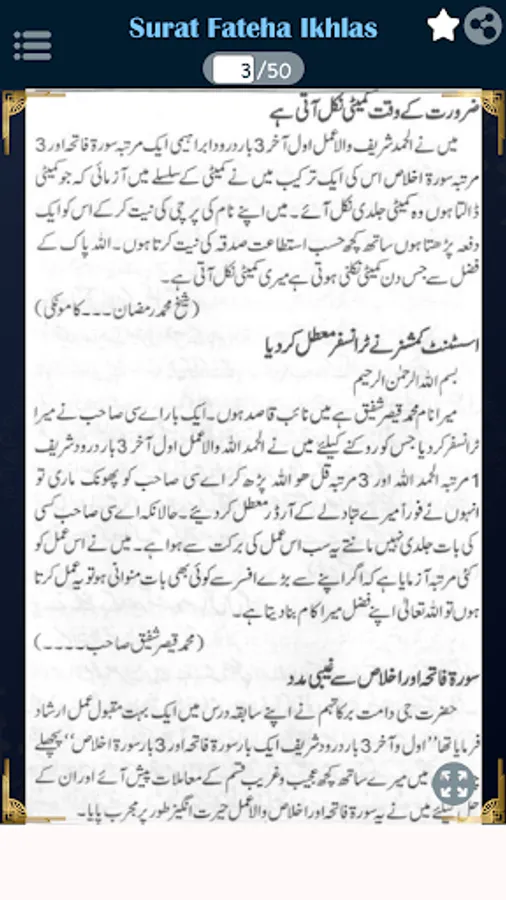 Surat Fateha Ikhlas
3/50
ضرورت کے وقت کمیٹی نکل آتی ہے
میں نے الحمد شریف والا عمل اول آخر 3 بار درود ابراہیمی ایک مرتبہ سورۃ فاتحہ اور 3
مرتبہ سورۃ اخلاص اس کی ایک ترکیب میں نے کمیٹی کے سلسلے میں آزمائی کہ جو کمیٹی
ڈالتا ہوں وہ کمیٹی جلدی نکل آئے۔ میں اپنے نام کی پرچی کی نیت کر کے اس کو ایک
دفعہ پڑھتا ہوں ساتھ کچھ حسب استطاعت صدقہ کی نیت کرتا ہوں۔ اللہ پاک کے
فضل سے جس دن کمیٹی نکلنی ہوتی ہے میری کمیٹی نکل آتی ہے۔
(شیخ محمد رمضان۔۔۔ کامونکی)
اسسٹنٹ کمشنر نے ٹرانسفر معطل کر دیا
بسم اللہ الرحمٰن الرحیم
میرا نام محمد قیصر شفیق ہے میں نائب قاصد ہوں۔ ایک بار اے سی صاحب نے میرا
ٹرانسفر کر دیا جس کو روکنے کیلئے میں نے الحمد اللہ والا عمل اول آخر 3 بار درود شریف
1 مرتبہ الحمد اللہ اور 3 مرتبہ قل ھو اللہ پڑھ کر اے سی صاحب کو پھونک ماری تو
انہوں نے فوراً میرے تبادلے کے آرڈر معطل کر دیئے۔ حالانکہ اے سی صاحب کسی
کی بات جلدی نہیں مانتے یہ سب اس عمل کی برکت سے ہوا ہے۔ میں نے اس عمل کو
کئی مرتبہ آزمایا ہے کہ اگر اپنے سے بڑے افسر سے کوئی بھی بات منوانی ہو تو یہ عمل کرتا
ہوں تو اللہ تعالیٰ اپنے فضل میرا کام بنا دیتا ہے۔
(محمد قیصر شفیق صاحب۔۔۔۔)
سورۃ فاتحہ اور اخلاص سے غیبی مدد
حضرت جی دامت برکاتہم نے اپنے سابقہ درس میں ایک بہت مقبول عمل ارشاد
فرمایا تھا "اول و آخر 3 بار درود شریف ایک بار سورۃ فاتحہ اور 3 بار سورۃ اخلاص" پچھلے
میں میرے ساتھ کچھ عجیب و غریب قسم کے معاملات پیش آئے اور ان کے
حل کیلئے میں نے یہ سورۃ فاتحہ اور اخلاص والا عمل حیرت انگیز طور پر مجرب پایا۔